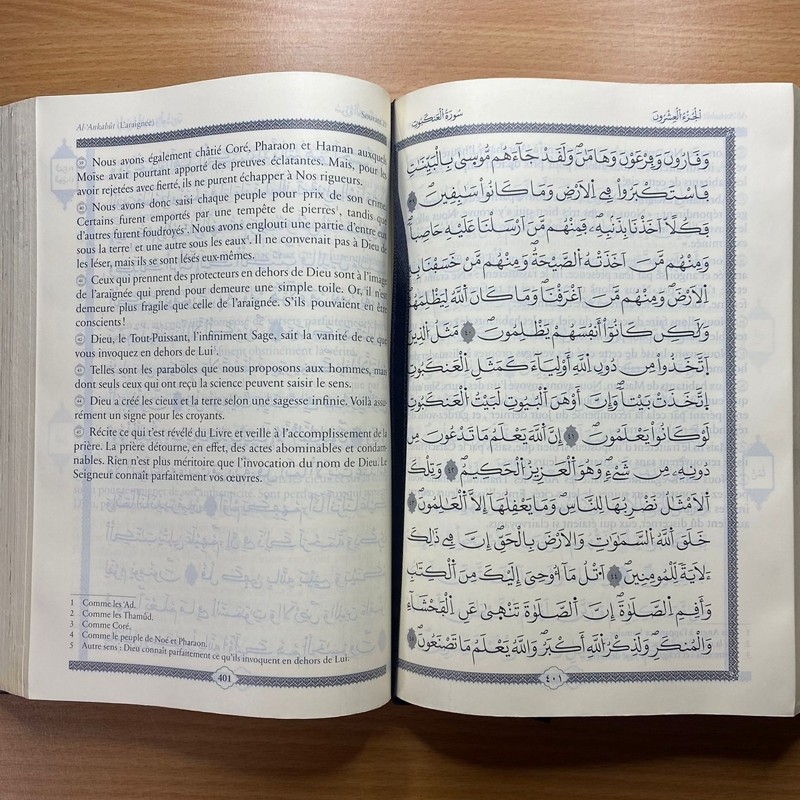 Al-'Ankabût (L'araignée)
Sourate 29
39 Nous avons également châtié Coré, Pharaon et Haman auxquels
Moïse avait pourtant apporté des preuves éclatantes. Mais, pour les
avoir rejetées avec fierté, ils ne purent échapper à Nos rigueurs.
40 Nous avons donc saisi chaque peuple pour prix de son crime.
Certains furent emportés par une tempête de pierres¹, tandis que
d'autres furent foudroyés². Nous avons englouti une partie d'entre eux
sous la terre³ et une autre sous les eaux⁴. Il ne convenait pas à Dieu de
les léser, mais ils se sont lésés eux-mêmes.
41 Ceux qui prennent des protecteurs en dehors de Dieu sont à l'image
de l'araignée qui prend pour demeure une simple toile. Or, il n'est
demeure plus fragile que celle de l'araignée. S'ils pouvaient en être
conscients !
42 Dieu, le Tout-Puissant, l'infiniment Sage, sait la vanité de ce que
vous invoquez en dehors de Lui⁵.
43 Telles sont les paraboles que nous proposons aux hommes, mais
dont seuls ceux qui ont reçu la science peuvent saisir le sens.
44 Dieu a créé les cieux et la terre selon une sagesse infinie. Voilà assu-
rément un signe pour les croyants.
45 Récite ce qui t'est révélé du Livre et veille à l'accomplissement de la
prière. La prière détourne, en effet, des actes abominables et condam-
nables. Rien n'est plus méritoire que l'invocation du nom de Dieu. Le
Seigneur connaît parfaitement vos œuvres.
1 Comme les 'Ad.
2 Comme les Thamûd.
3 Comme Coré,
4 Comme le peuple de Noé et Pharaon.
5 Autre sens : Dieu connaît parfaitement ce qu'ils invoquent en dehors de Lui.
401
سُورَةُ الْعَنكَبُوتِ
الْجُزْءُ الْعِشْرُونَ
وَقَارُونَ وَفِرْعَوْنَ وَهَامَٰنَ وَلَقَدْ جَآءَهُم مُّوسَىٰ بِالْبَيِّنَٰتِ
فَاسْتَكْبَرُوا۟ فِي اِلَارْضِ وَمَا كَانُوا۟ سَٰبِقِينَ ٣٩
فَكُلًّا اَخَذْنَا بِذَنۢبِهِۦ فَمِنْهُم مَّنَ اَرْسَلْنَا عَلَيْهِ حَاصِبًا
وَمِنْهُم مَّنَ اَخَذَتْهُ الصَّيْحَةُ وَمِنْهُم مَّنْ خَسَفْنَا بِهِ
اِلَارْضَ وَمِنْهُم مَّنَ اَغْرَقْنَا وَمَا كَانَ اَللَّهُ لِيَظْلِمَهُمْ
وَلَٰكِن كَانُوٓا۟ أَنفُسَهُمْ يَظْلِمُونَ ٤٠ مَثَلُ الذِينَ
اَتَّخَذُوا۟ مِن دُونِ اِللَّهِ أَوْلِيَآءَ كَمَثَلِ اِلْعَنكَبُوتِ
اِتَّخَذَتْ بَيْتًا وَإِنَّ أَوْهَنَ اَلْبُيُوتِ لَبَيْتُ اُلْعَنكَبُوتِ
لَوْ كَانُوا۟ يَعْلَمُونَ ٤١ إِنَّ اَللَّهَ يَعْلَمُ مَا تَدْعُونَ مِن
دُونِهِۦ مِن شَےْءٍ وَهُوَ اَلْعَزِيزُ اُلْحَكِيمُ ٤٢ وَتِلْكَ
اَلَامْثَٰلُ نَضْرِبُهَا لِلنَّاسِ وَمَا يَعْقِلُهَآ إِلَّا اَلْعَٰلِمُونَ ٤٣
خَلَقَ اَللَّهُ اُلسَّمَٰوَٰتِ وَالَارْضَ بِالْحَقِّ إِنَّ فِي ذَٰلِكَ
ءَلَايَةً لِّلْمُومِنِينَ ٤٤ اَتْلُ مَآ أُوحِيَ إِلَيْكَ مِنَ اَلْكِتَٰبِ
وَأَقِمِ اِلصَّلَوٰةَ إِنَّ اَلصَّلَوٰةَ تَنْهَىٰ عَنِ اِلْفَحْشَآءِ
وَالْمُنكَرِ وَلَذِكْرُ اُللَّهِ أَكْبَرُ وَاللَّهُ يَعْلَمُ مَا تَصْنَعُونَ ٤٥
٤٠١